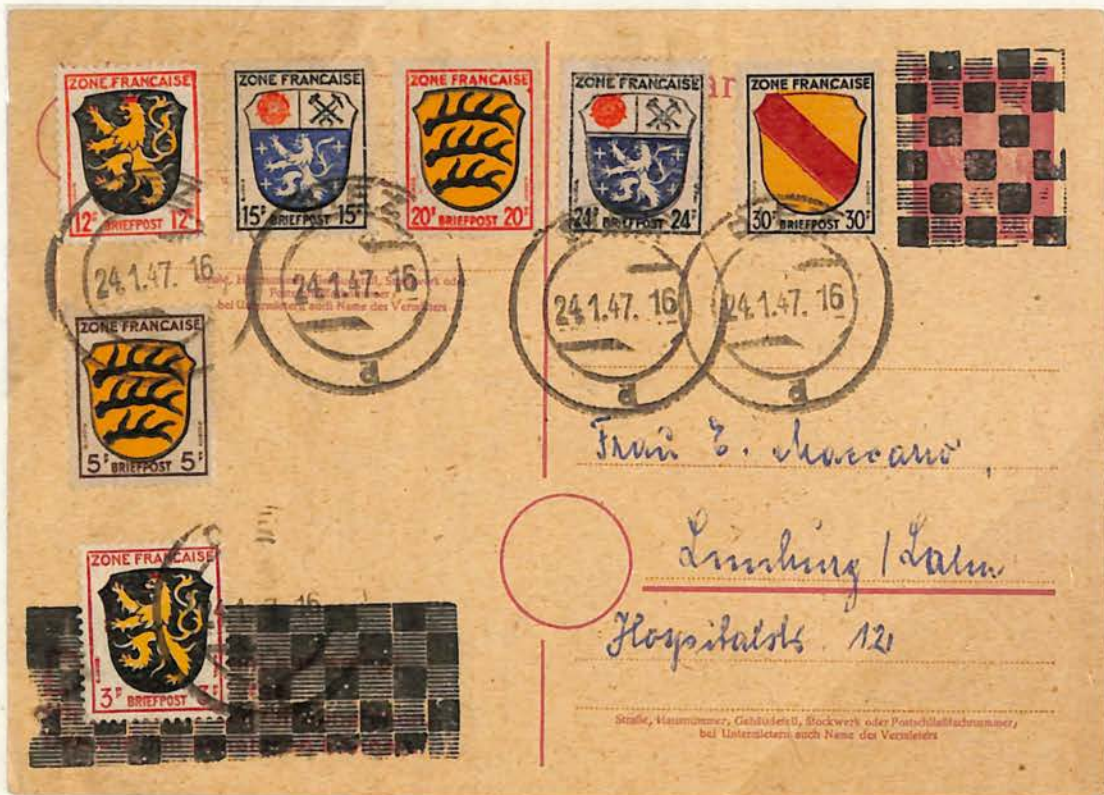 ZONE FRANCAISE
12F BRIEFPOST 12F
ZONE FRANCAISE
15F BRIEFPOST 15F
ZONE FRANCAISE
20F BRIEFPOST 20F
ZONE FRANCAISE
24F BRIEFPOST 24F
ZONE FRANCAISE
30F BRIEFPOST 30F
24.1.47. 16
24.1.47. 16
24.1.47. 16
24.1.47. 16
bei Untermietern auch Name des Vermieters
ZONE FRANCAISE
5F BRIEFPOST 5F
ZONE FRANCAISE
3F BRIEFPOST 3F
Frau E.
Limburg / Lahn
Hospitalstr 12
Straße, Hausnummer, Gebäudeteil, Stockwerk oder Postschließfachnummer,
bei Untermietern auch Name des Vermieters